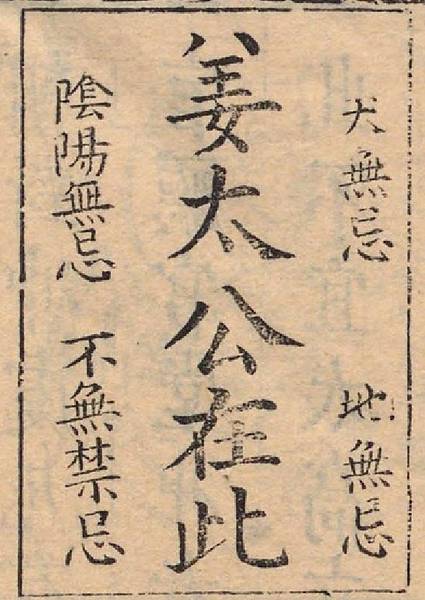 天無忌 地無忌
姜太公在此
陰陽無忌 不無禁忌